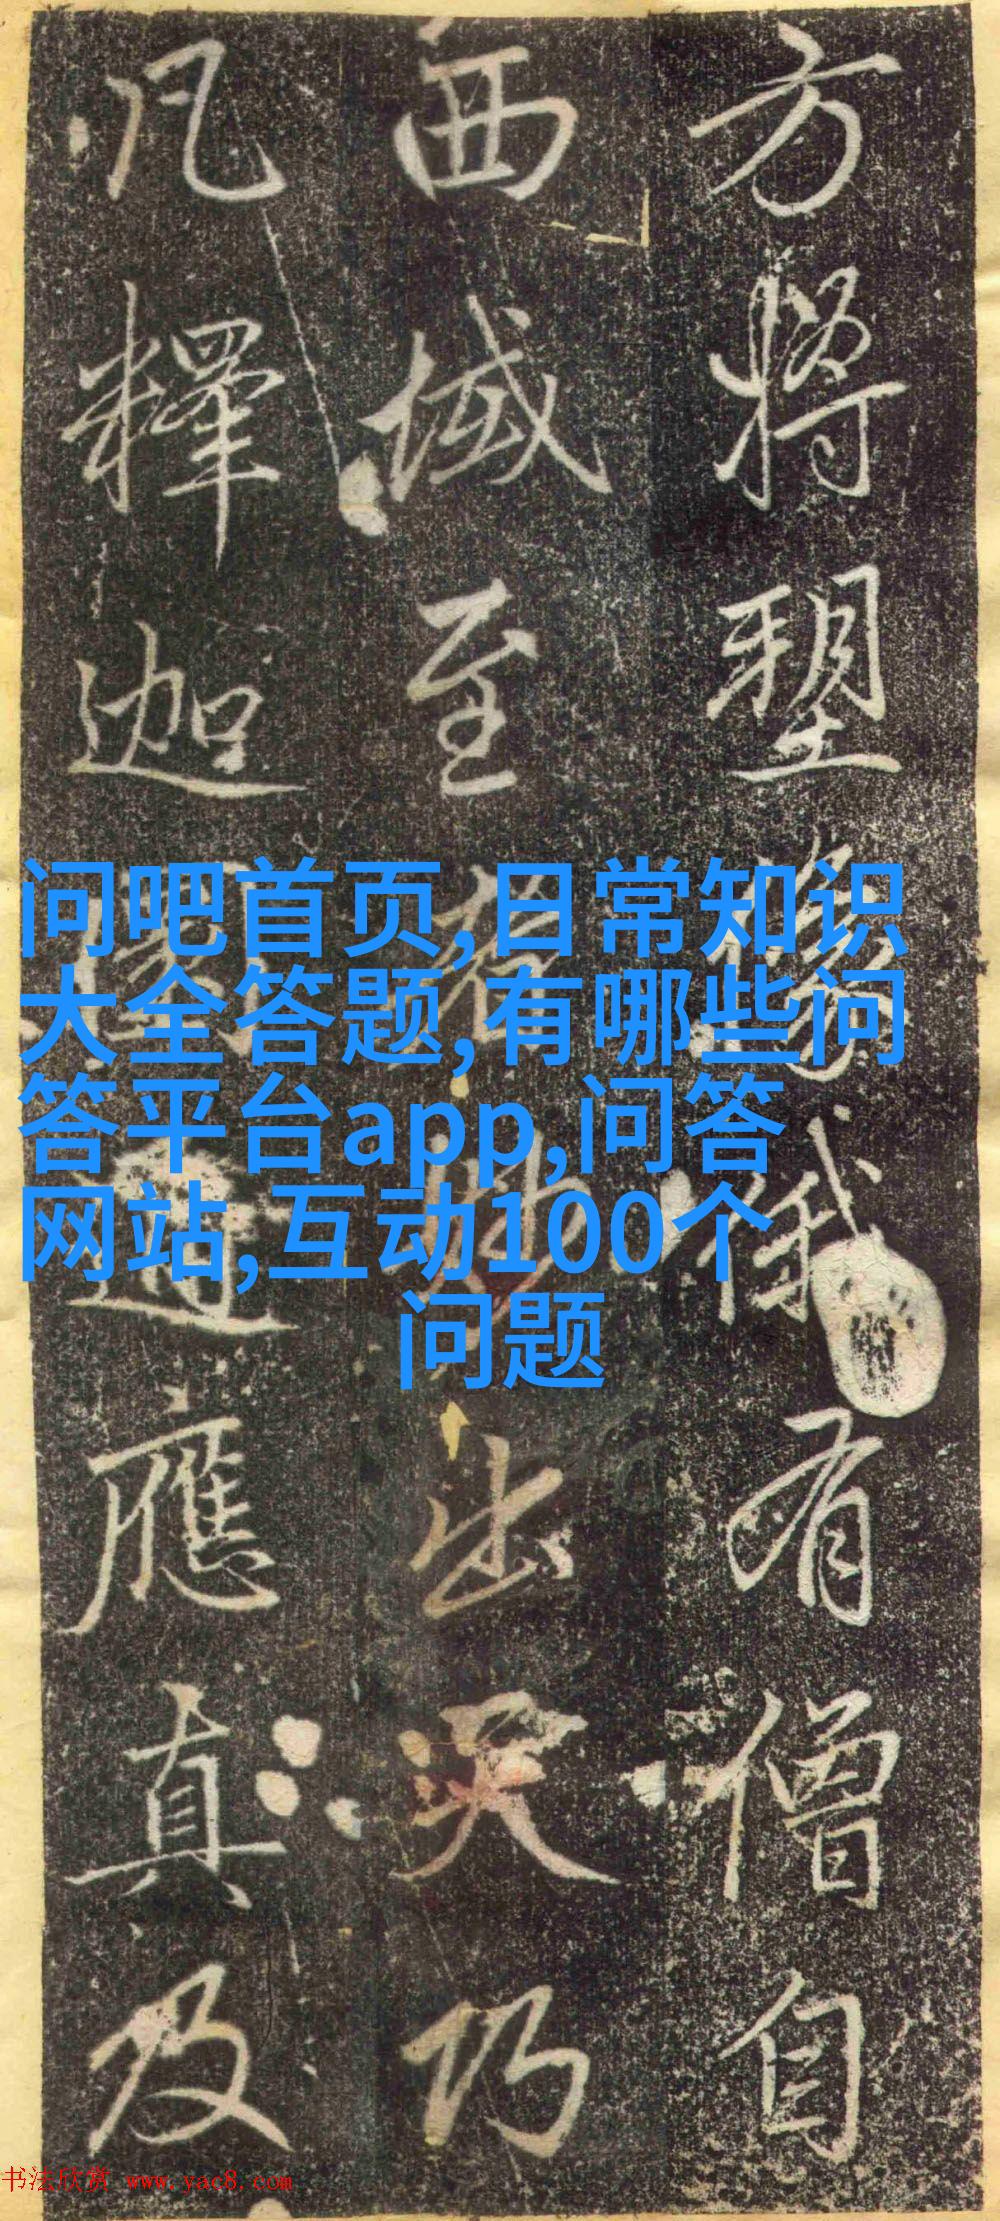 方將塑像俄有僧自
西域至者妙出天巧
凡釋迦應真及
问吧首页,日常知识
大全答题,有哪些问
答平台app,问答
网站,互动100个
问题
书法欣赏 www.yac8.com